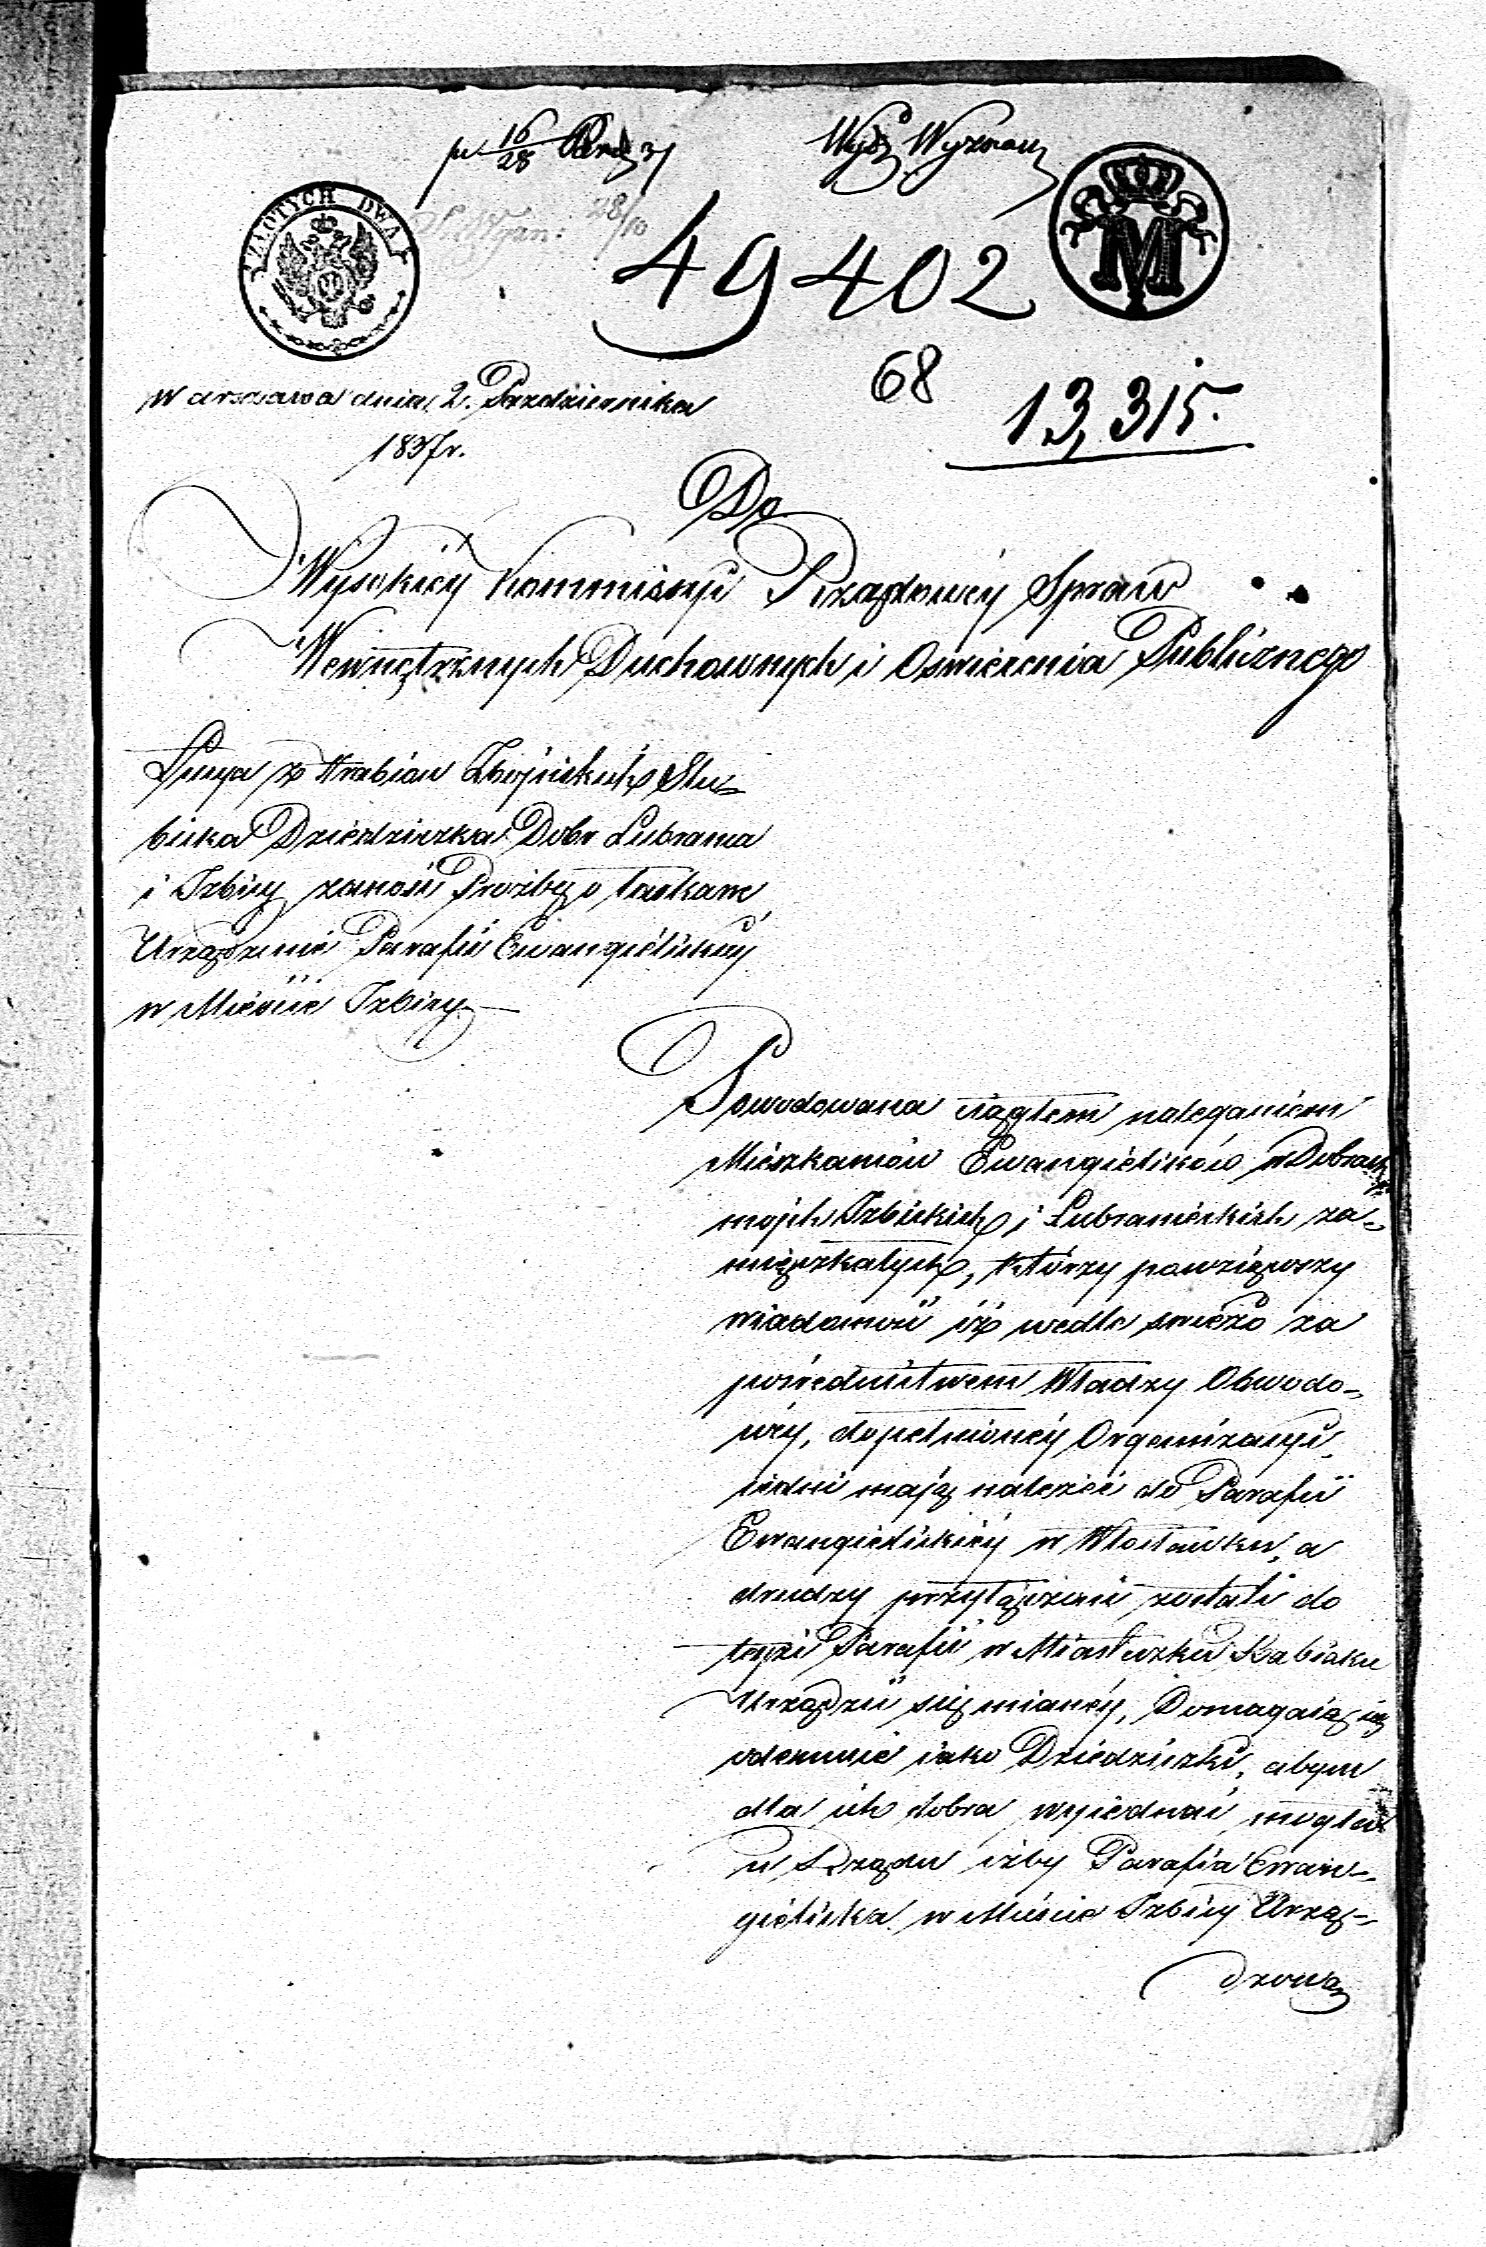 p 16/28 Paźd 37
Wydz Wyznań
ZŁOTYCH DWA
28/10
49402
M
68
13,315.
Warszawa dnia 2. Pazdziernika
1837 r.
Do
Wysokiéy Kommissyi Rządowéy Spraw
Wewnętrznych Duchownych i Oswiecenia Publicznego
z Hrabiow Słu-
bicka Dziedziczka Dobr Lubrania
i Izbicy zanosi Prozbę o łaskawe
Urządzenie Parafii Ewangielickiey
w Mieście Izbicy.
Powodowana ciągłem naleganiem
Mieszkancow Ewangielików w Dobrach
moich Izbickich i Lubranieckich za-
mięszkałych, którzy powziąwszy
wiadomość iż wedle swieżo za
pośrednictwem Władzy Obwodo-
wéy, dopełnionéy Organizacyi,
iedni mają należeć do Parafii
Ewangielickiéy w Włocławku, a
drudzy przyłączeni zostali do
teyże Parafii w Miasteczku Babiaku
Urządzić się mianéy, Domagaią się
odemnie iako Dziedziczki, abym
dla ich dobra wyiednać mogła
u Rządu iżby Parafia Ewan-
gielicka w Mieście Izbicy Urzą-
dzoną